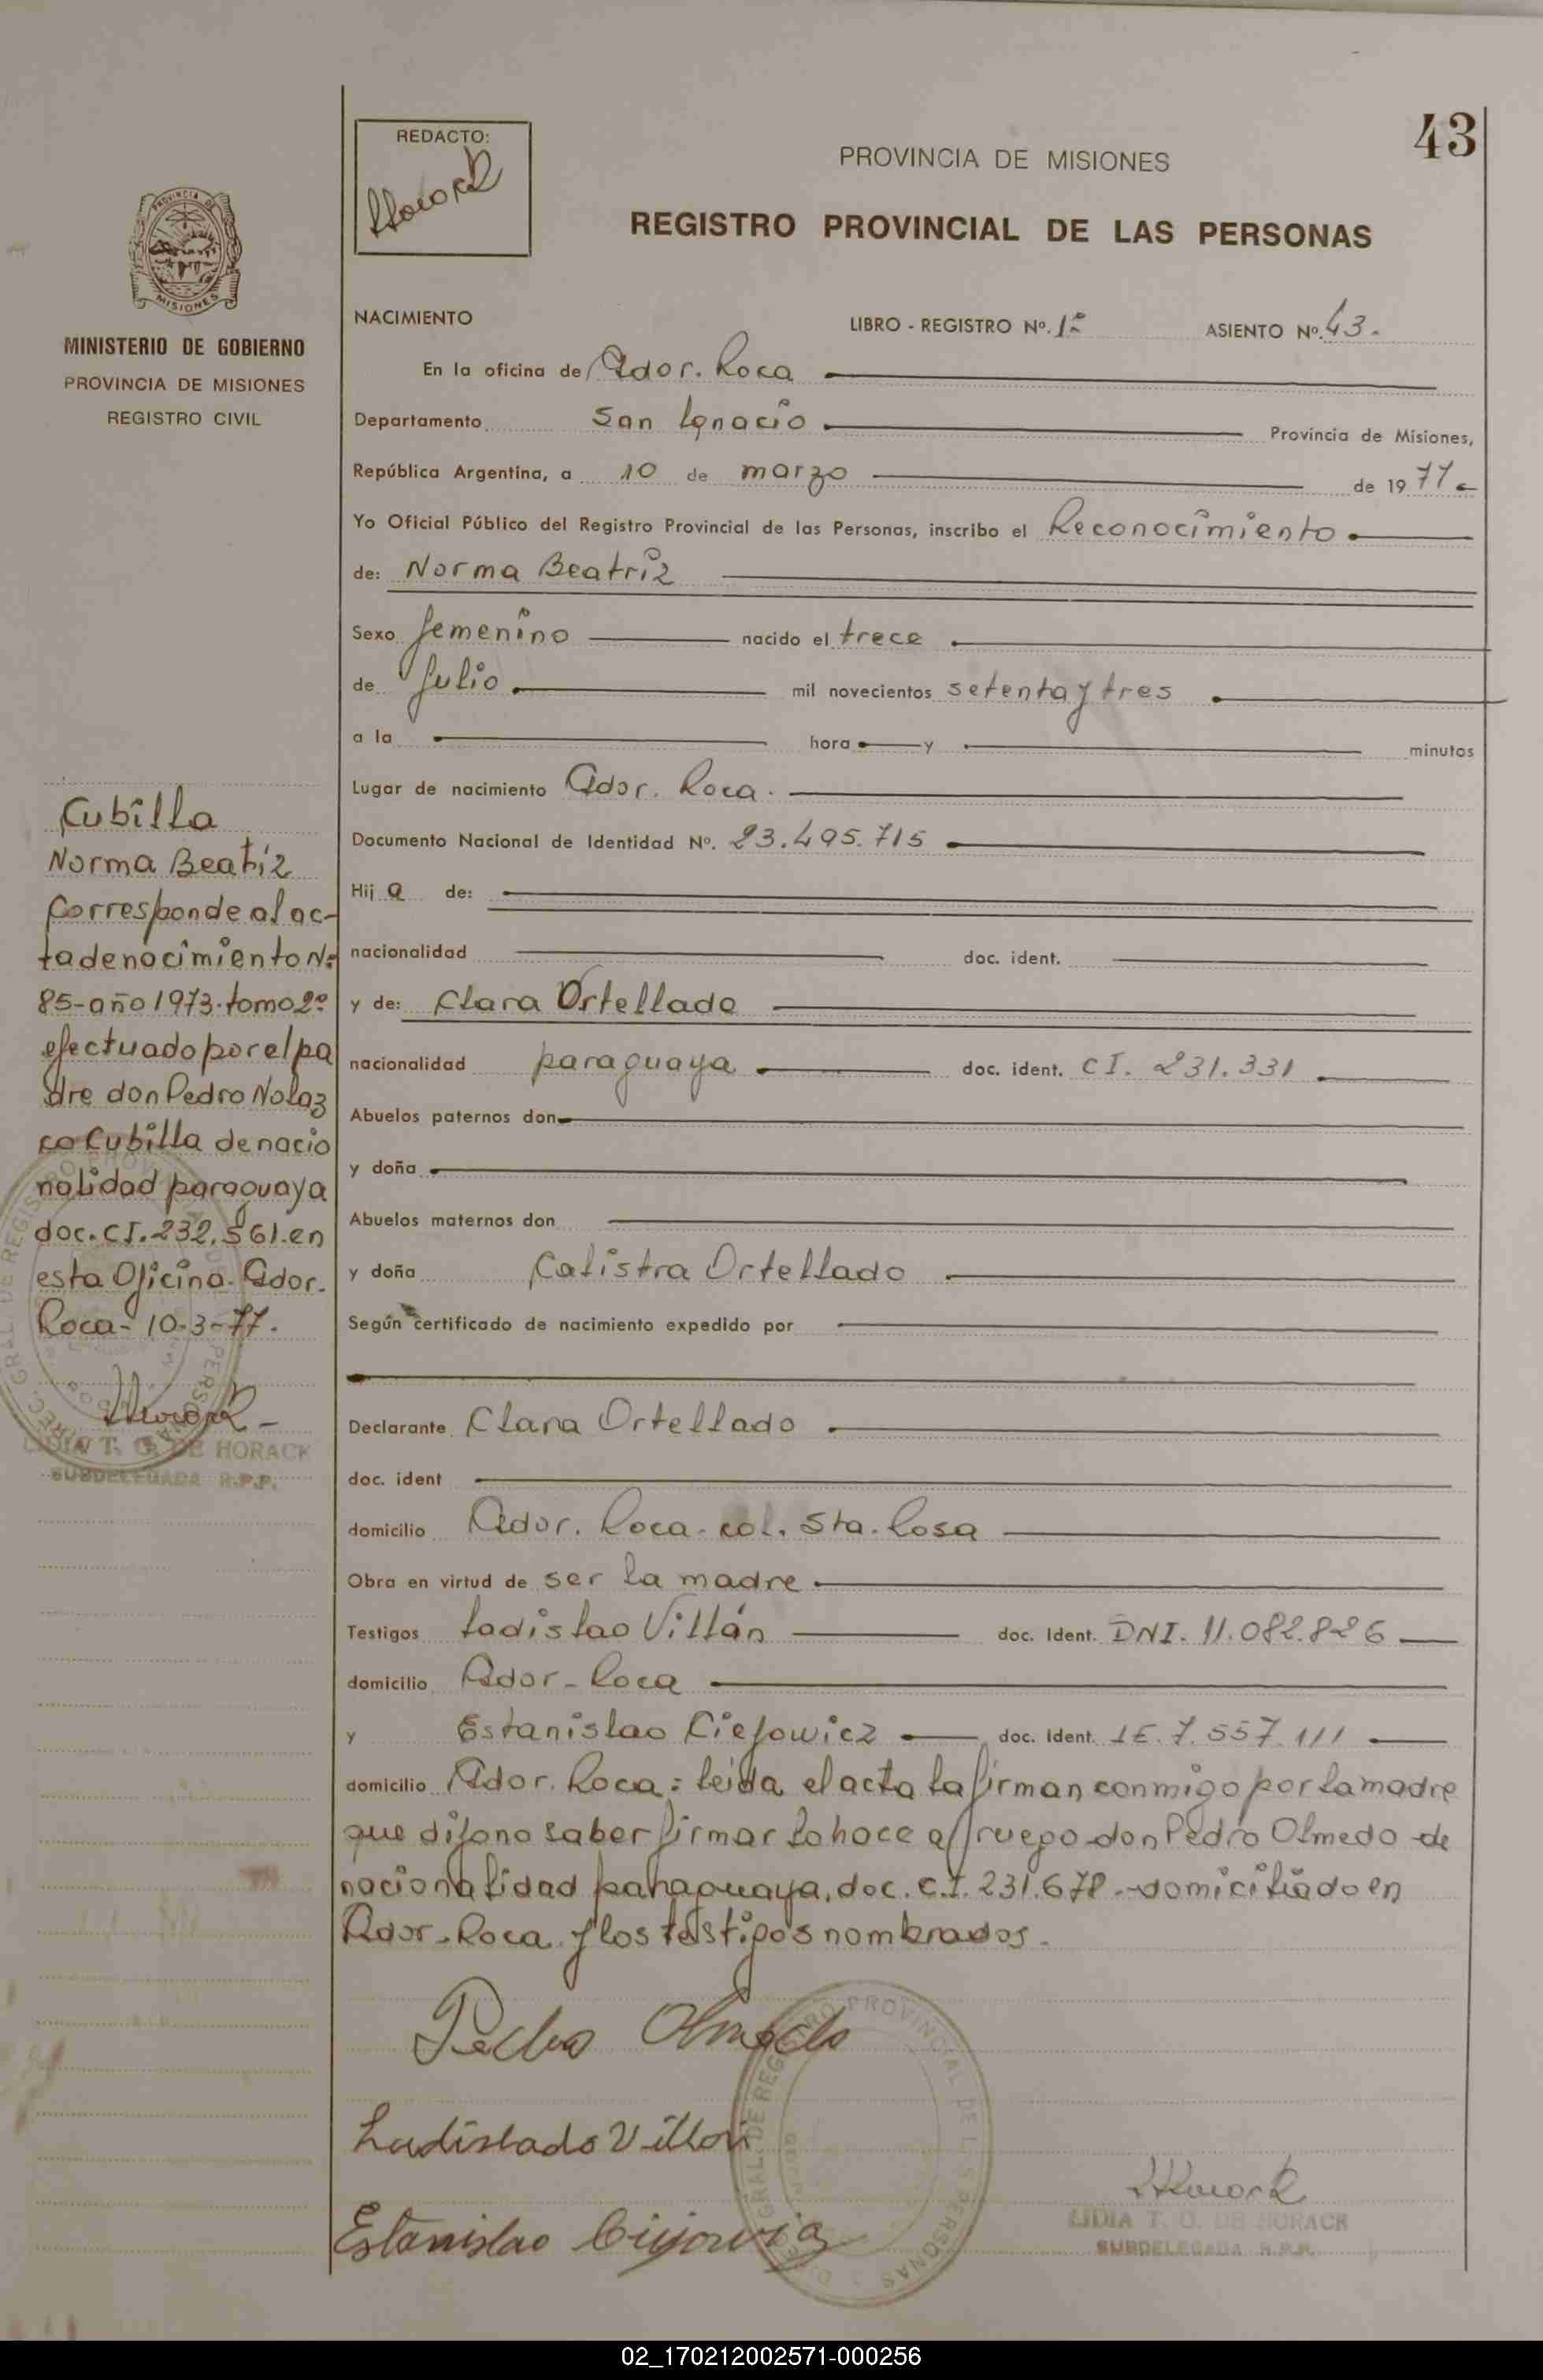 43
REDACTO:
PROVINCIA DE MISIONES
REGISTRO PROVINCIAL DE LAS PERSONAS
PROVINCIA DE
MISIONES
MINISTERIO DE GOBIERNO
PROVINCIA DE MISIONES
REGISTRO CIVIL
NACIMIENTO LIBRO - REGISTRO Nº. 1º ASIENTO Nº. 43.
En la oficina de Gdor. Roca
Departamento San Ignacio Provincia de Misiones,
República Argentina, a 10 de marzo de 1977
Yo Oficial Público del Registro Provincial de las Personas, inscribo el Reconocimiento
de: Norma Beatriz
Sexo femenino nacido el trece
de Julio mil novecientos setenta y tres
a la hora y minutos
Lugar de nacimiento Gdor. Roca.
Documento Nacional de Identidad Nº. 23.495.715
Hij a de:
nacionalidad doc. ident.
y de: Clara Ortellado
nacionalidad paraguaya doc. ident. CI. 231.331
Abuelos paternos don
y doña
Abuelos maternos don
y doña Calistra Ortellado
Según certificado de nacimiento expedido por
Declarante Clara Ortellado
doc. ident
domicilio Gdor. Roca. col. Sta. Rosa
Obra en virtud de ser la madre
Testigos Ladislao Villán doc. Ident. DNI. 11.082.826
domicilio Gdor - Roca
y Estanislao Ciejowicz doc. Ident. LE. 7.557.111
domicilio Gdor. Roca: leida el acta la firman conmigo por la madre
que dijo no saber firmar lo hace a ruego don Pedro Olmedo de
nacionalidad paraguaya, doc. C.I. 231.678 - domiciliado en
Gdor. Roca y los testigos nombrados.
Pedro Olmedo
Ladislado Villan
Estanislao
LIDIA T. O. DE HORACK
SUBDELEGADA R.P.P.
Cubilla
Norma Beatriz
Corresponde al ac-
ta de nacimiento Nº
85 - año 1973. tomo 2º
efectuado por el pa
dre don Pedro Nolaz
co Cubilla de nacio
nalidad paraguaya
doc. CI. 232.561. en
esta Oficina. Gdor.
Roca - 10-3-77.
LIDIA T. O. DE HORACK
SUBDELEGADA R.P.P.
02_170212002571-000256